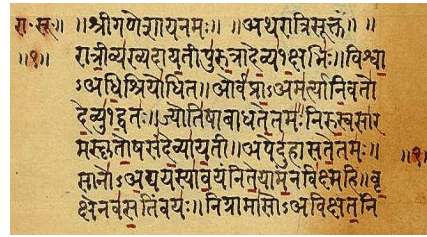 रा॰ सू॰ ॥ ॥श्रीगणेशायनमः॥ ॥अथरात्रिसूक्तं॥ ॥
रात्रीव्यख्यदायतीपुरुत्रादेव्य१क्षभिः॥विश्वा
॥१॥
ऽअधिश्रियोधित॥ओर्वप्राऽअमर्त्यानिवतो
देव्यु१द्वतः॥ज्योतिषाबाधतेतमः॥निरुस्वसार
मस्कृतोषसंदेव्यायती॥अपेदुहासतेतमः॥
॥१॥
सानोऽअद्ययस्यावयंनितेयामन्नविक्ष्महि॥वृ
क्षेनवसतिंवयः॥निग्रामासोऽअविक्षतनि